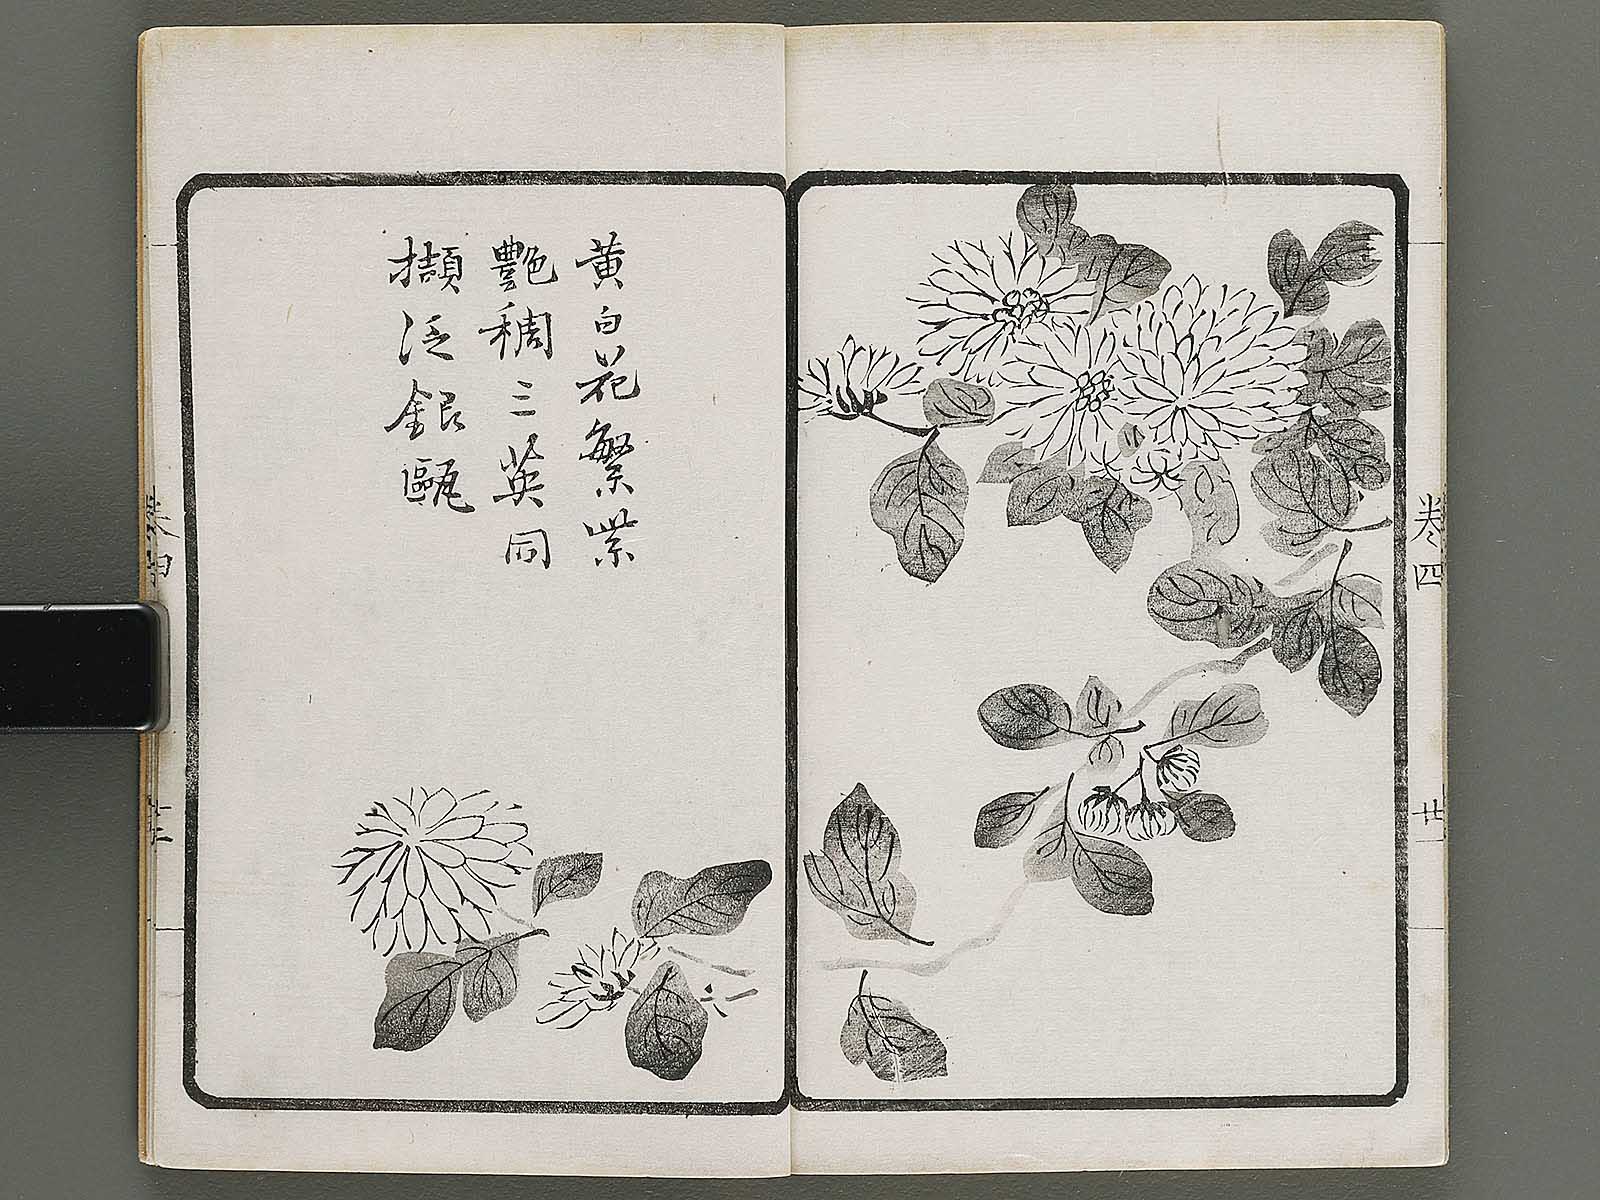 黄白花繁紫
艶稠三英同
擷泛銀甌
卷四
廿一
卷四